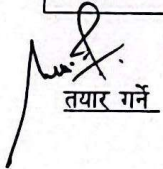 तयार गर्ने